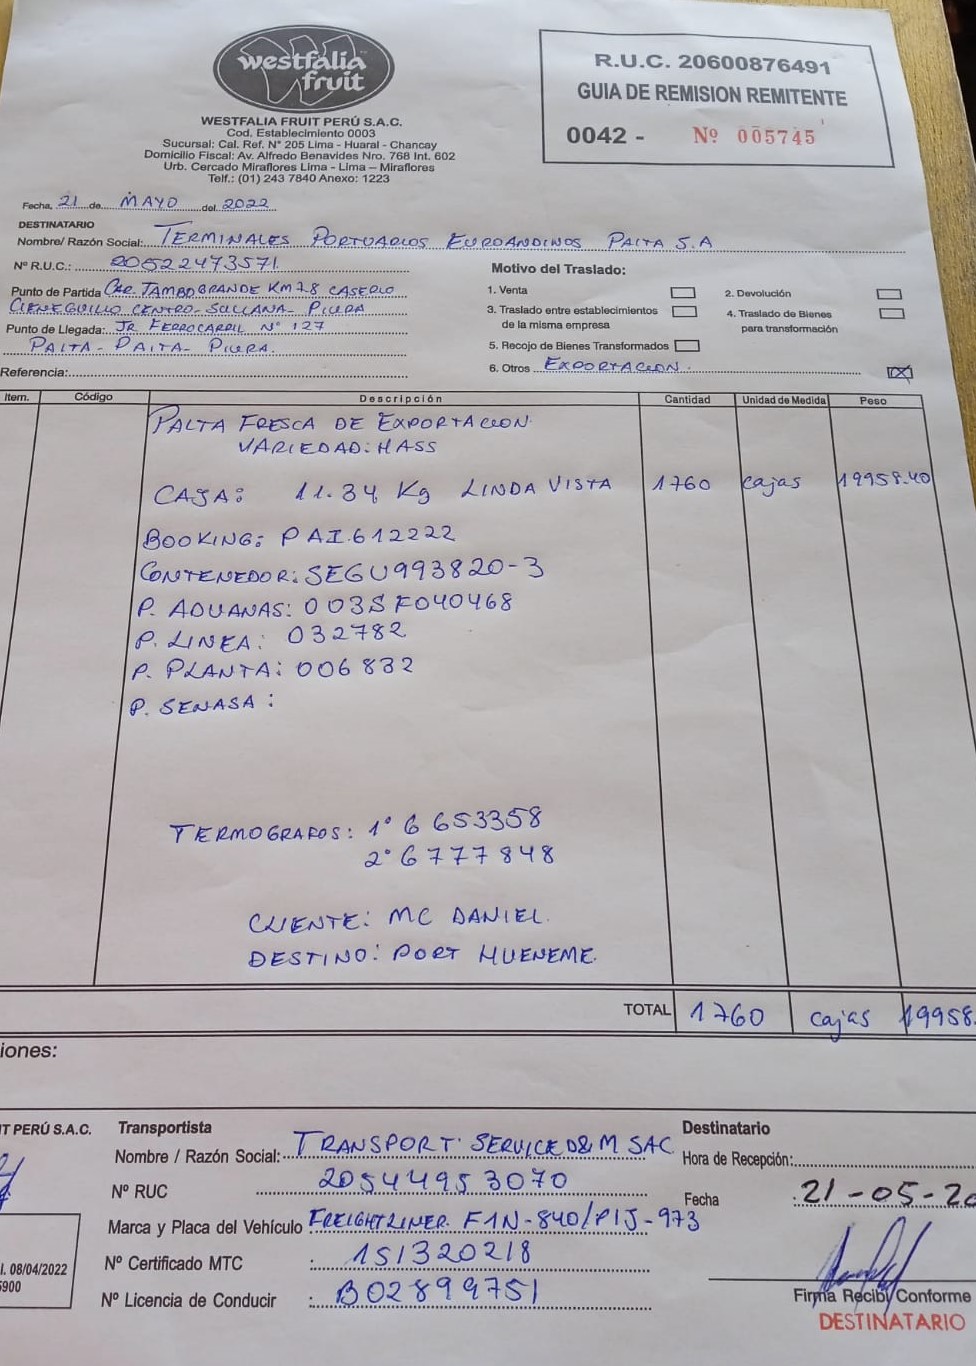 westfalia
fruit
WESTFALIA FRUIT PERÚ S.A.C.
Cod. Establecimiento 0003
Sucursal: Cal. Ref. N° 205 Lima - Huaral - Chancay
Domicilio Fiscal: Av. Alfredo Benavides Nro. 768 Int. 602
Urb. Cercado Miraflores Lima - Lima – Miraflores
Telf.: (01) 243 7840 Anexo: 1223
R.U.C. 20600876491
GUIA DE REMISION REMITENTE
0042 - Nº 005745
Fecha, 21 de MAYO del 2022
DESTINATARIO
Nombre/ Razón Social: TERMINALES PORTUARIOS EUROANDINOS PAITA S.A
Nº R.U.C.: 20522473571
Punto de Partida Car. TAMBOGRANDE KM 7.8 CASERIO
CIENEGUILLO CENTRO - SULLANA - PIURA
Punto de Llegada: JR FERROCARRIL N° 127
PAITA - PAITA - PIURA.
Referencia:
Motivo del Traslado:
1. Venta
2. Devolución
3. Traslado entre establecimientos de la misma empresa
4. Traslado de Bienes para transformación
5. Recojo de Bienes Transformados
6. Otros EXPORTACION. X
Item. Código Descripción Cantidad Unidad de Medida Peso
PALTA FRESCA DE EXPORTACION
VARIEDAD: HASS
CAJA: 11.34 Kg LINDA VISTA 1760 cajas 19958.40
BOOKING: PAI.612222
CONTENEDOR: SEGU993820-3
P. ADUANAS: 003SF040468
P. LINEA: 032782
P. PLANTA: 006832
P. SENASA:
TERMOGRAFOS: 1° 6653358
2° 6777848
CLIENTE: MC DANIEL.
DESTINO: PORT HUENEME.
TOTAL 1760 cajas 19958.
iones:
IT PERÚ S.A.C.
l. 08/04/2022
5900
Transportista
Nombre / Razón Social: TRANSPORT SERVICE D&M SAC
Nº RUC 20544953070
Marca y Placa del Vehículo FREIGHTLINER F1N-840/P1J-973
Nº Certificado MTC : 151320218
Nº Licencia de Conducir : B02899751
Destinatario
Hora de Recepción:
Fecha 21-05-20
Firma Recibí Conforme
DESTINATARIO